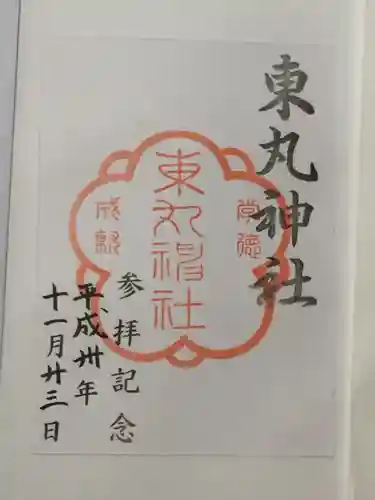 東丸神社
学徳
東丸神社
成就
参拝記念
平成卅年
十一月廿三日